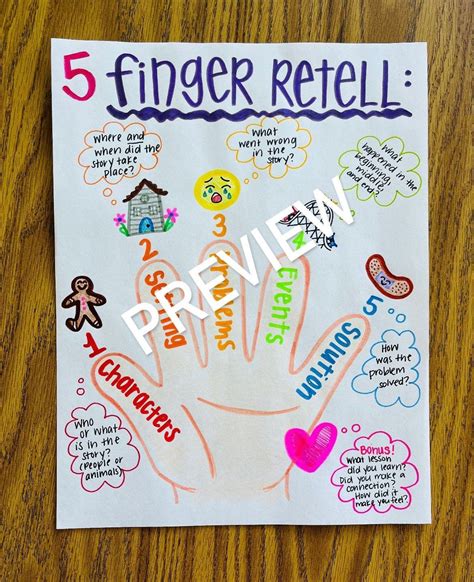 5 finger RETELL:
Where and
when did the
story take
place?
What
went wrong
in the
story?
What
happened in the
beginning,
middle,
and end?
1
Characters
2
Setting
3
Problems
4
Events
5
Solution
PREVIEW
Who or
what
is in the
story?
(People or
animals)
How
was the
problem
solved?
Bonus!
What lesson
did you learn?
Did you make a
connection?
How did it
make you feel?